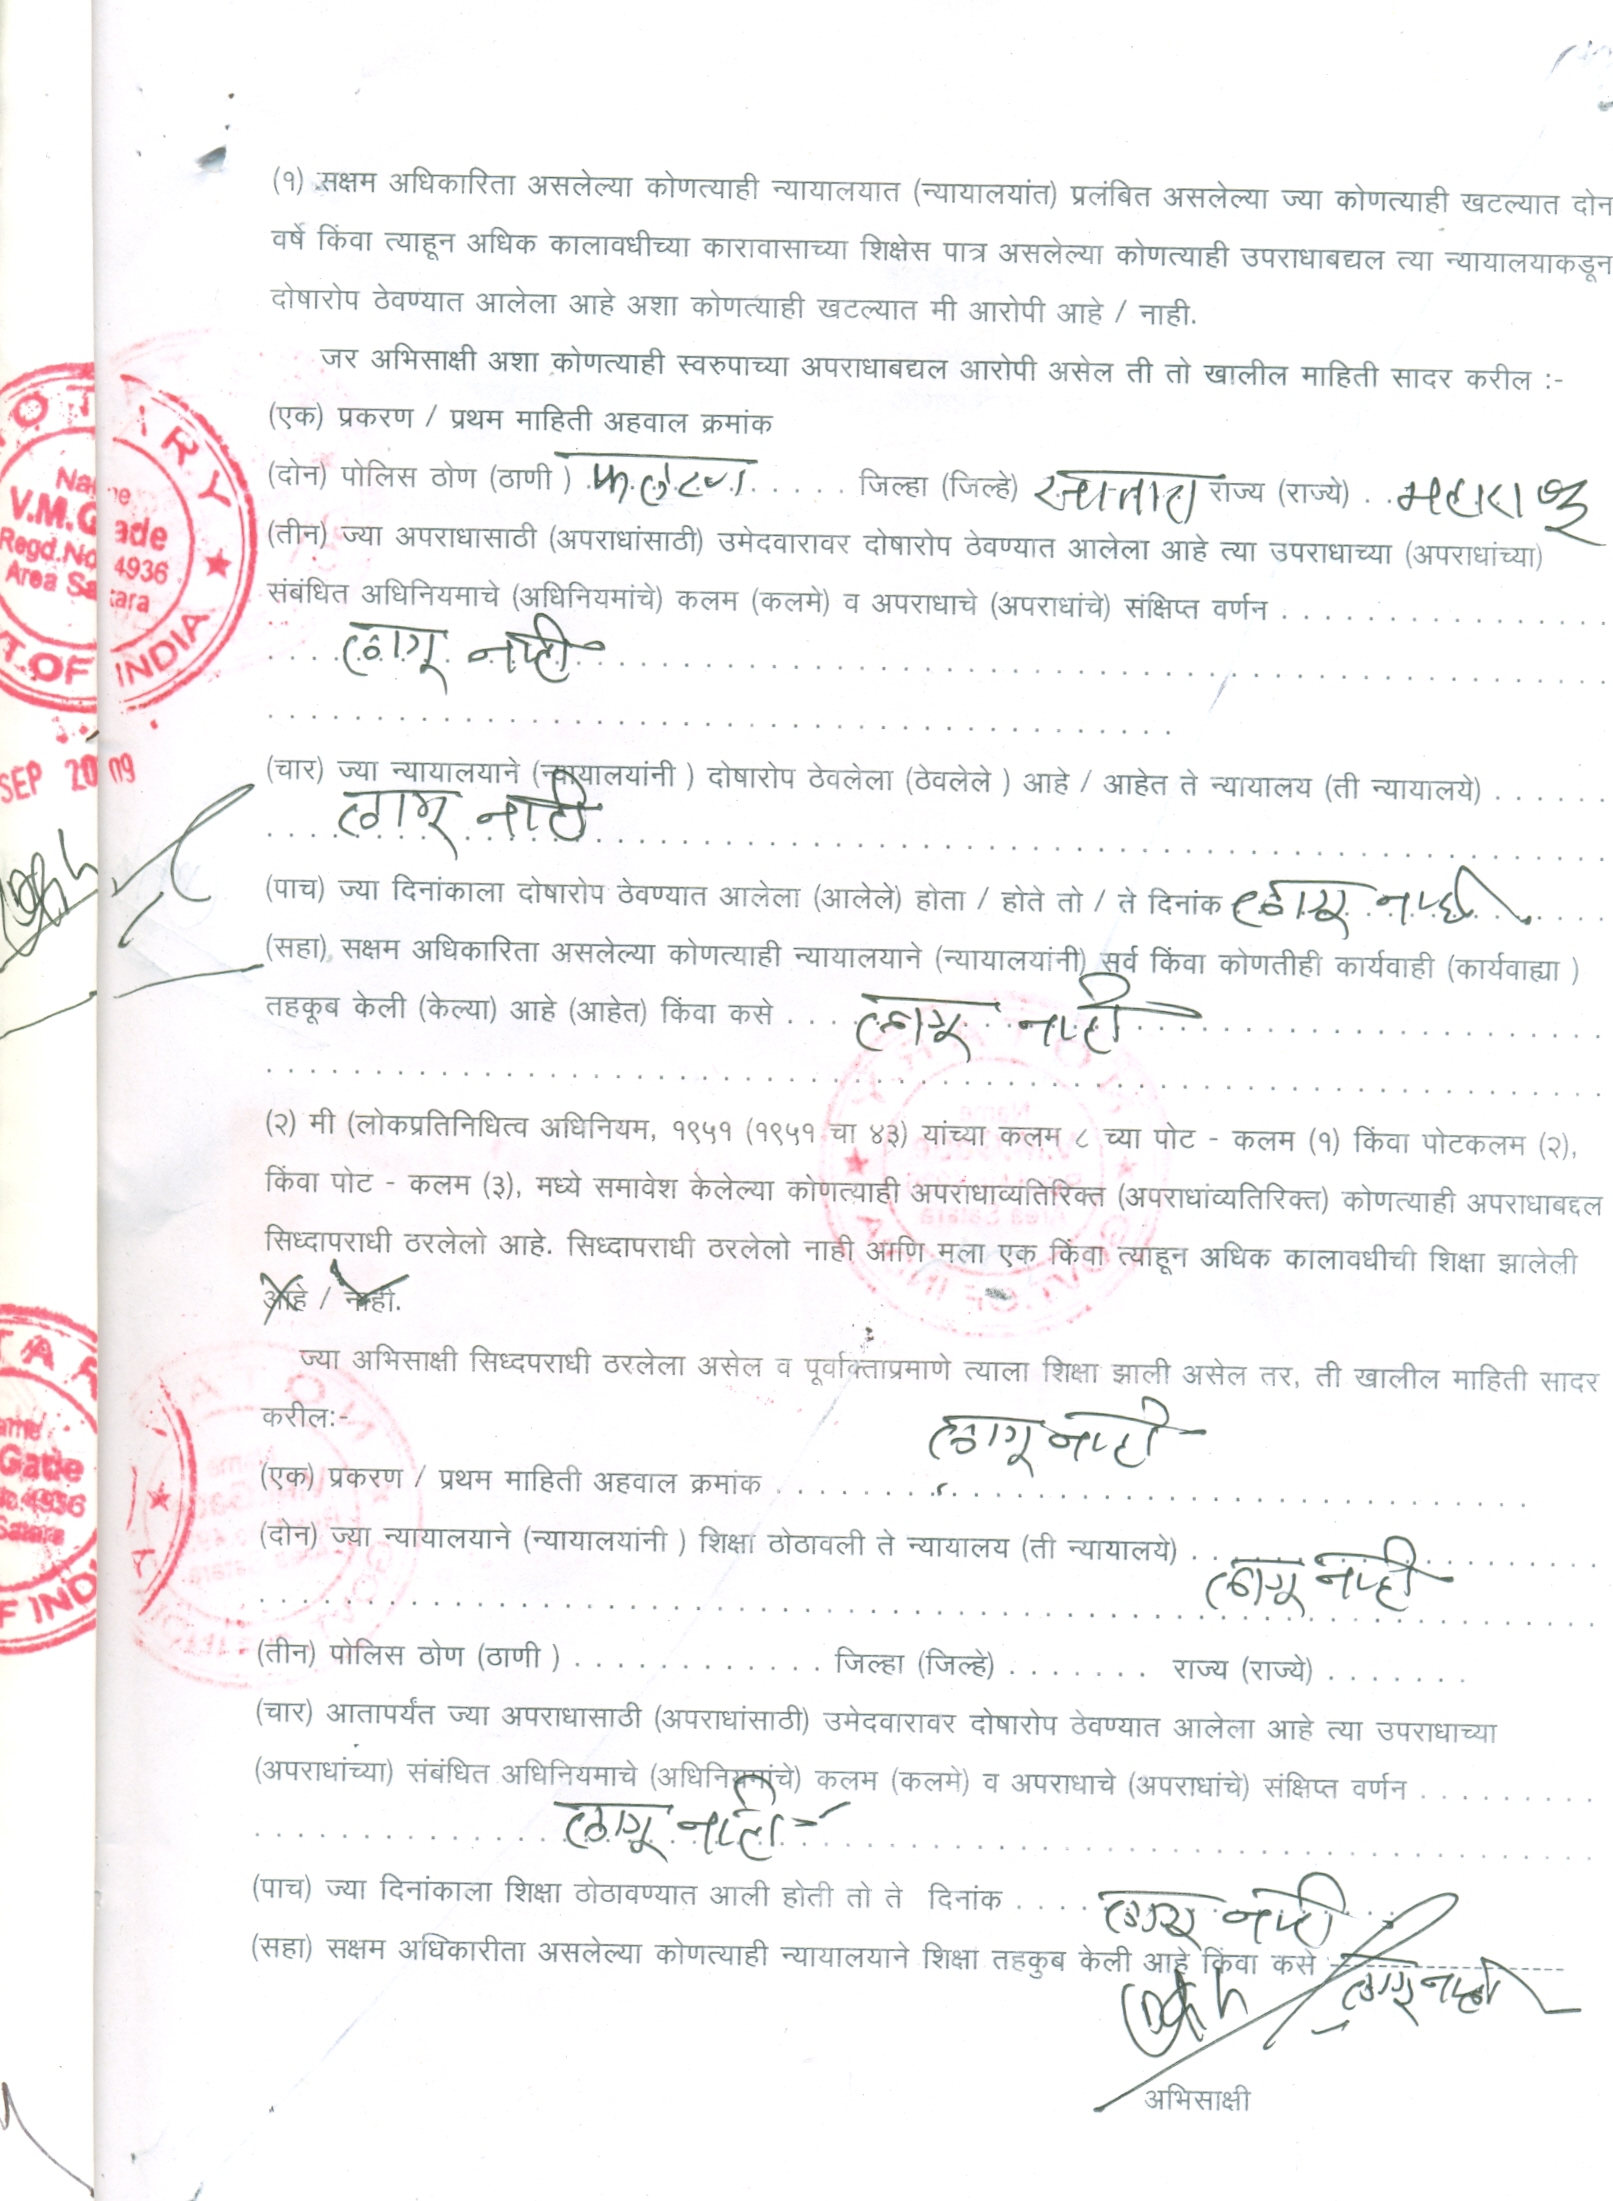 (१) सक्षम अधिकारिता असलेल्या कोणत्याही न्यायालयात (न्यायालयांत) प्रलंबित असलेल्या ज्या कोणत्याही खटल्यात दोन
वर्षे किंवा त्याहून अधिक कालावधीच्या कारावासाच्या शिक्षेस पात्र असलेल्या कोणत्याही उपराधाबद्यल त्या न्यायालयाकडून
दोषारोप ठेवण्यात आलेला आहे अशा कोणत्याही खटल्यात मी आरोपी आहे / नाही.
जर अभिसाक्षी अशा कोणत्याही स्वरुपाच्या अपराधाबद्यल आरोपी असेल ती तो खालील माहिती सादर करील :-
(एक) प्रकरण / प्रथम माहिती अहवाल क्रमांक
(दोन) पोलिस ठोण (ठाणी ) फलटण ..... जिल्हा (जिल्हे) सातारा राज्य (राज्ये) .. महाराष्ट्र
(तीन) ज्या अपराधासाठी (अपराधांसाठी) उमेदवारावर दोषारोप ठेवण्यात आलेला आहे त्या उपराधाच्या (अपराधांच्या)
संबंधित अधिनियमाचे (अधिनियमांचे) कलम (कलमे) व अपराधाचे (अपराधांचे) संक्षिप्त वर्णन ................
लागू नाही
(चार) ज्या न्यायालयाने (न्यायालयांनी ) दोषारोप ठेवलेला (ठेवलेले ) आहे / आहेत ते न्यायालय (ती न्यायालये) ......
लागू नाही
(पाच) ज्या दिनांकाला दोषारोप ठेवण्यात आलेला (आलेले) होता / होते तो / ते दिनांक लागू नाही
(सहा) सक्षम अधिकारिता असलेल्या कोणत्याही न्यायालयाने (न्यायालयांनी) सर्व किंवा कोणतीही कार्यवाही (कार्यवाह्या )
तहकूब केली (केल्या) आहे (आहेत) किंवा कसे .... लागू नाही
(२) मी (लोकप्रतिनिधित्व अधिनियम, १९५१ (१९५१ चा ४३) यांच्या कलम ८ च्या पोट - कलम (१) किंवा पोटकलम (२),
किंवा पोट - कलम (३), मध्ये समावेश केलेल्या कोणत्याही अपराधाव्यतिरिक्त (अपराधांव्यतिरिक्त) कोणत्याही अपराधाबद्दल
सिध्दापराधी ठरलेलो आहे. सिध्दापराधी ठरलेलो नाही आणि मला एक किंवा त्याहून अधिक कालावधीची शिक्षा झालेली
आहे / नाही.
ज्या अभिसाक्षी सिध्दपराधी ठरलेला असेल व पूर्वाक्ताप्रमाणे त्याला शिक्षा झाली असेल तर, ती खालील माहिती सादर
करील:-
लागू नाही
(एक) प्रकरण / प्रथम माहिती अहवाल क्रमांक ..............................
(दोन) ज्या न्यायालयाने (न्यायालयांनी ) शिक्षा ठोठावली ते न्यायालय (ती न्यायालये) ..........
लागू नाही
(तीन) पोलिस ठोण (ठाणी ) ............. जिल्हा (जिल्हे) ....... राज्य (राज्ये) .......
(चार) आतापर्यंत ज्या अपराधासाठी (अपराधांसाठी) उमेदवारावर दोषारोप ठेवण्यात आलेला आहे त्या उपराधाच्या
(अपराधांच्या) संबंधित अधिनियमाचे (अधिनियमांचे) कलम (कलमे) व अपराधाचे (अपराधांचे) संक्षिप्त वर्णन .........
लागू नाही
(पाच) ज्या दिनांकाला शिक्षा ठोठावण्यात आली होती तो ते दिनांक .... लागू नाही
(सहा) सक्षम अधिकारीता असलेल्या कोणत्याही न्यायालयाने शिक्षा तहकुब केली आहे किंवा कसे :-
लागू नाही
अभिसाक्षी
NOTARY
Name
V.M.Gade
Regd.No. 4936
Area Satara
GOVT.OF INDIA
SEP 2009
Gade
4936
Satara
OF INDIA